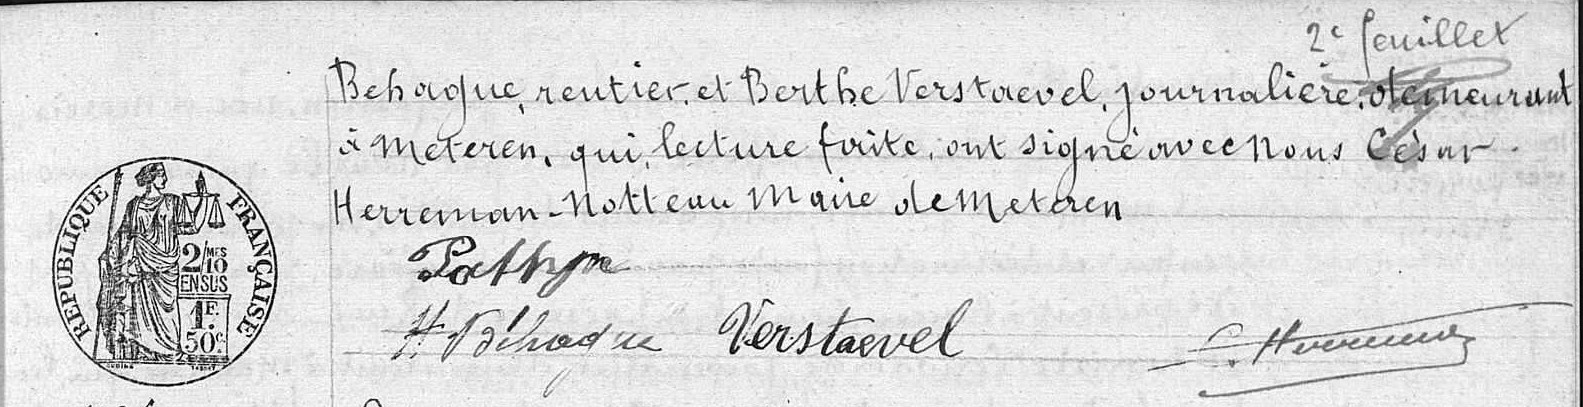 2e feuillet
Behague, rentier, et Berthe Verstaevel, journalière, demeurant
à Meteren, qui, lecture faite, ont signé avec Nous César
Herreman-Notteau Maire de Meteren
RÉPUBLIQUE FRANÇAISE
2/10 MES
EN SUS
1F.
50c
H. Béhague Verstaevel C. Herreman